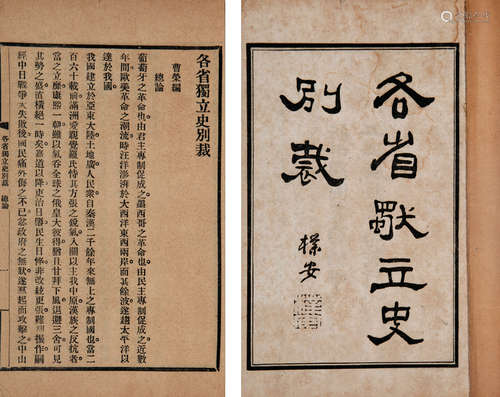 各省獨立史
別裁
樸安
各省獨立史別裁
曹榮編
總論
葡萄牙之革命也由君主專制促成之墨西哥之革命也由民主專制促成之近數
年間歐美革命之潮流時汪洋澎湃於大西洋東西兩岸而其餘波遂趨太平洋以
達於我國
我國建立於亞東大陸土地廣人民衆自秦漢二千餘年來無上之專制國也當二
百六十載前滿洲愛親覺羅氏恃其方張之銳氣入關以主我中原漢族之反抗者
當之立靡康熙一朝雖以氣吞全球之俄皇大彼得猶且甘拜下風退避三舍可見
其勢之盛直橫絕一時矣嘉道以降吏治日窳民生日悴非改絃更張難期振作嗣
經中日戰爭大失敗後國民痛外侮之不已忿政府之無狀遂羣起而攻擊之中山
各省獨立史別裁 總論